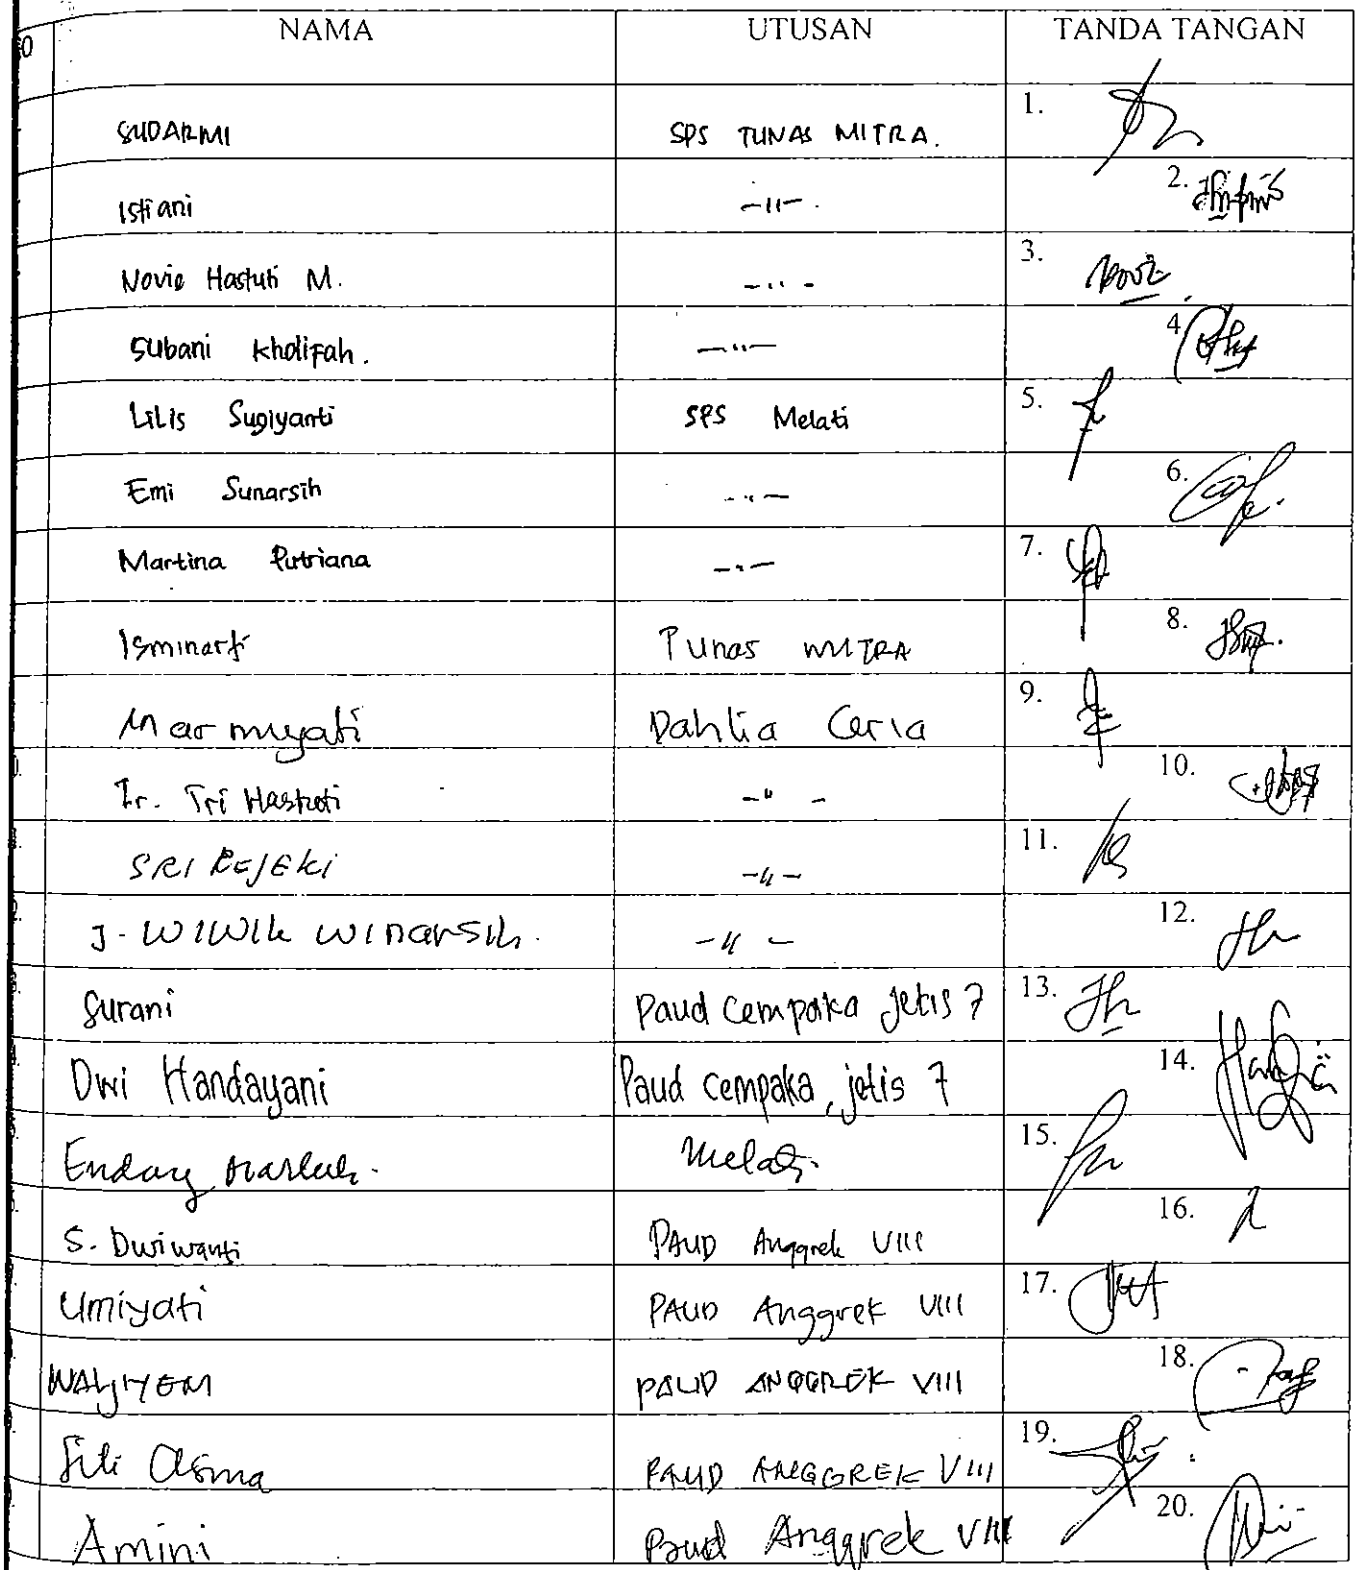 0 NAMA UTUSAN TANDA TANGAN
SUDARMI SPS TUNAS MITRA. 1.
Istiani -11- . 2.
Novie Hastuti M. - 11 - 3. Novie
Subani Kholifah. -11- 4
Lilis Sugiyanti SPS Melati 5.
Emi Sunarsih - 11 - 6.
Martina Putriana - 11 - 7.
Isminarti Tunas MITRA 8.
Marmuyati Dahlia Ceria 9.
Ir. Tri Hastuti - 11 - 10.
SRI REJEKI - 11 - 11.
J. WIWIK WINARSIH. - 11 - 12.
Surani Paud Cempaka Jetis 7 13.
Dwi Handayani Paud cempaka, jetis 7 14.
Endang Melati. 15.
S. Dwiwanti PAUD Anggrek VIII 16.
Umiyati PAUD Anggrek VIII 17.
WALJIYEM PAUD ANGGREK VIII 18.
Siti Asma PAUD ANGGREK VIII 19.
Amini Paud Anggrek VIII 20.